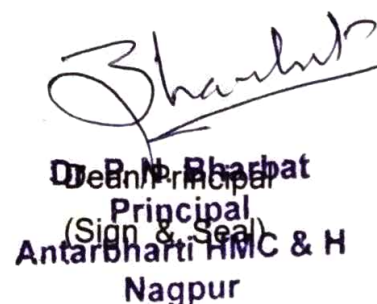 Bharbat
Dr. P. N. Bharbat
Dean/Principal
Principal
(Sign & Seal)
Antarbharti HMC & H
Nagpur